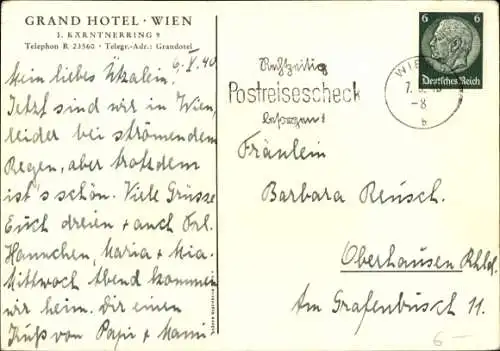 GRAND HOTEL · WIEN
I. KÄRNTNERRING 9
Telephon R 23560 · Telegr.-Adr.: Grandotel
6. V. 40
Mein liebes Ützalein!
Jetzt sind wir in Wien,
leider bei strömendem
Regen, aber trotzdem
ist's schön. Viele Grüsse
Euch dreien + auch Frl.
Hannchen, Maria + Mia.
Mittwoch Abend kommen
wir heim. Dir einen
Kuß von Papi + Mami
Rechtzeitig
Postreisescheck
besorgen!
WIEN
7. 5. 40
-8
b
6 6
Deutsches Reich
Fräulein
Barbara Reusch.
Oberhausen Rhld.
Am Grafenbusch 11.
6-